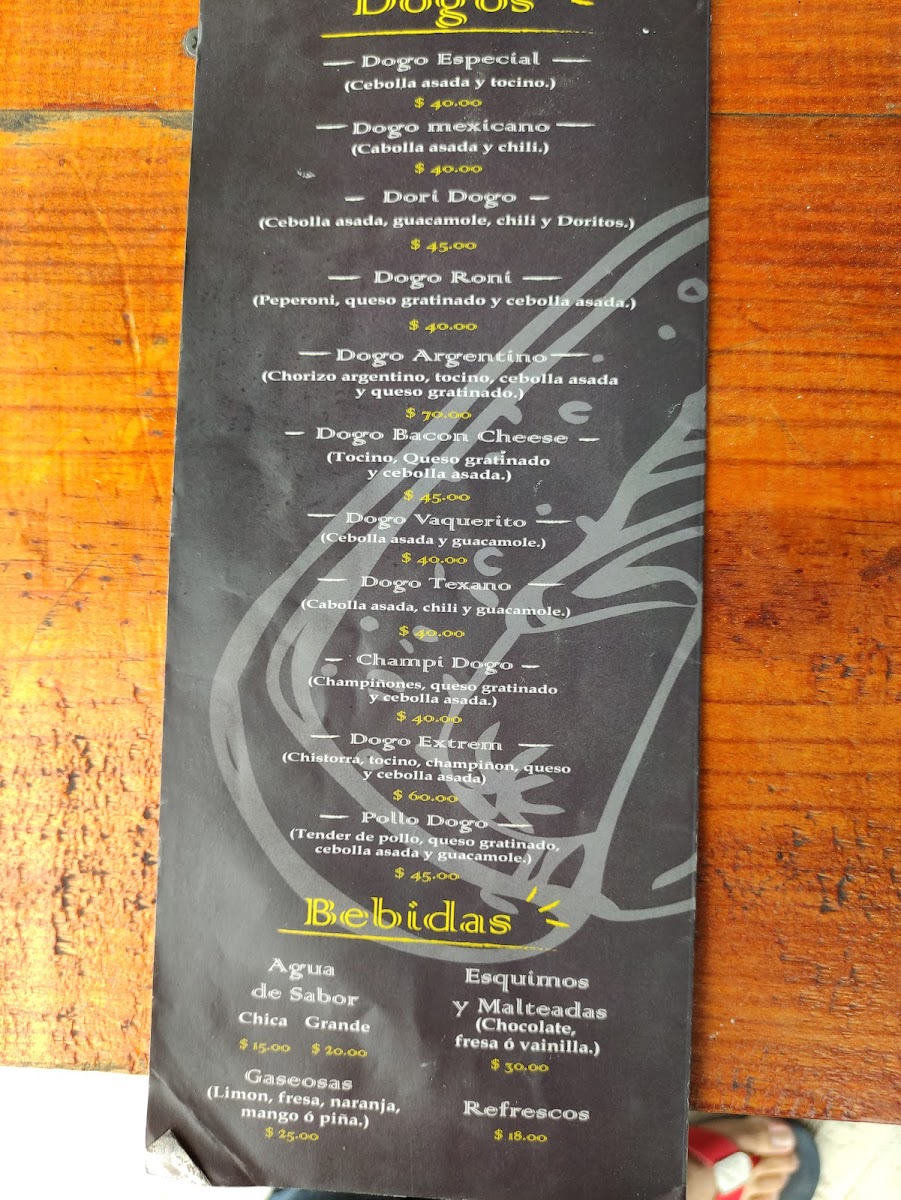 Dogos
Dogo Especial
(Cebolla asada y tocino.)
$ 40.00
Dogo mexicano
(Cabolla asada y chili.)
$ 40.00
Dori Dogo
(Cebolla asada, guacamole, chili y Doritos.)
$ 45.00
Dogo Roni
(Peperoni, queso gratinado y cebolla asada.)
$ 40.00
Dogo Argentino
(Chorizo argentino, tocino, cebolla asada
y queso gratinado.)
$ 70.00
Dogo Bacon Cheese
(Tocino, Queso gratinado
y cebolla asada.)
$ 45.00
Dogo Vaquerito
(Cebolla asada y guacamole.)
$ 40.00
Dogo Texano
(Cabolla asada, chili y guacamole.)
$ 40.00
Champi Dogo
(Champiñones, queso gratinado
y cebolla asada.)
$ 40.00
Dogo Extrem
(Chistorra, tocino, champiñon, queso
y cebolla asada)
$ 60.00
Pollo Dogo
(Tender de pollo, queso gratinado,
cebolla asada y guacamole.)
$ 45.00
Bebidas
Agua
de Sabor
Chica Grande
$ 15.00 $ 20.00
Gaseosas
(Limon, fresa, naranja,
mango ó piña.)
$ 25.00
Esquimos
y Malteadas
(Chocolate,
fresa ó vainilla.)
$ 30.00
Refrescos
$ 18.00